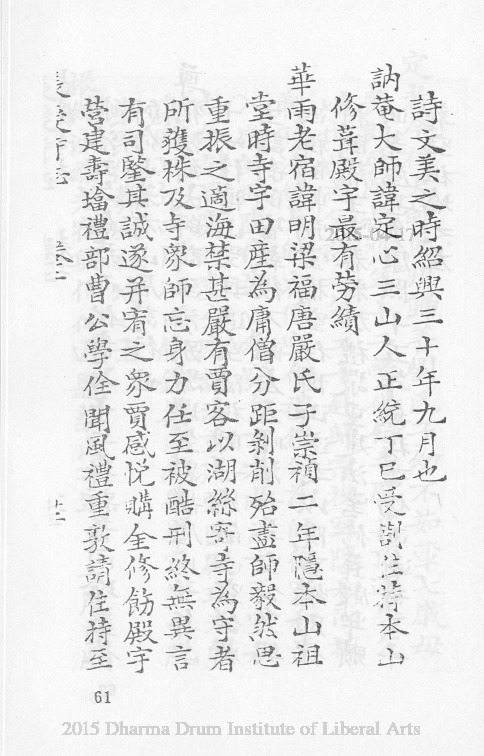 詩文美之時紹興三十年九月也
訥菴大師諱定心三山人正統丁巳受劄住持本山
修葺殿宇最有勞績
華雨老宿諱明梁福唐嚴氏子崇禎二年隱本山祖
堂時寺宇田產為庸僧分距剝削殆盡師毅然思
重振之適海禁甚嚴有賈客以湖絲寄寺為守者
所獲株及寺眾師忘身力任至被酷刑終無異言
有司鑒其誠遂并宥之眾賈感悅購金修飭殿宇
營建壽墖禮部曹公學佺聞風禮重敦請住持至
61
2015 Dharma Drum Institute of Liberal Arts